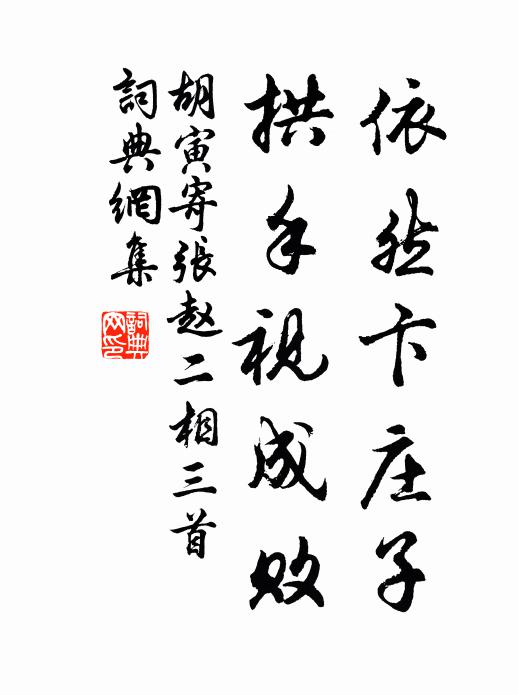 依然卞庄子
拱手視成败
胡寅寄張赵二相三首
詞典網集
詞典網印